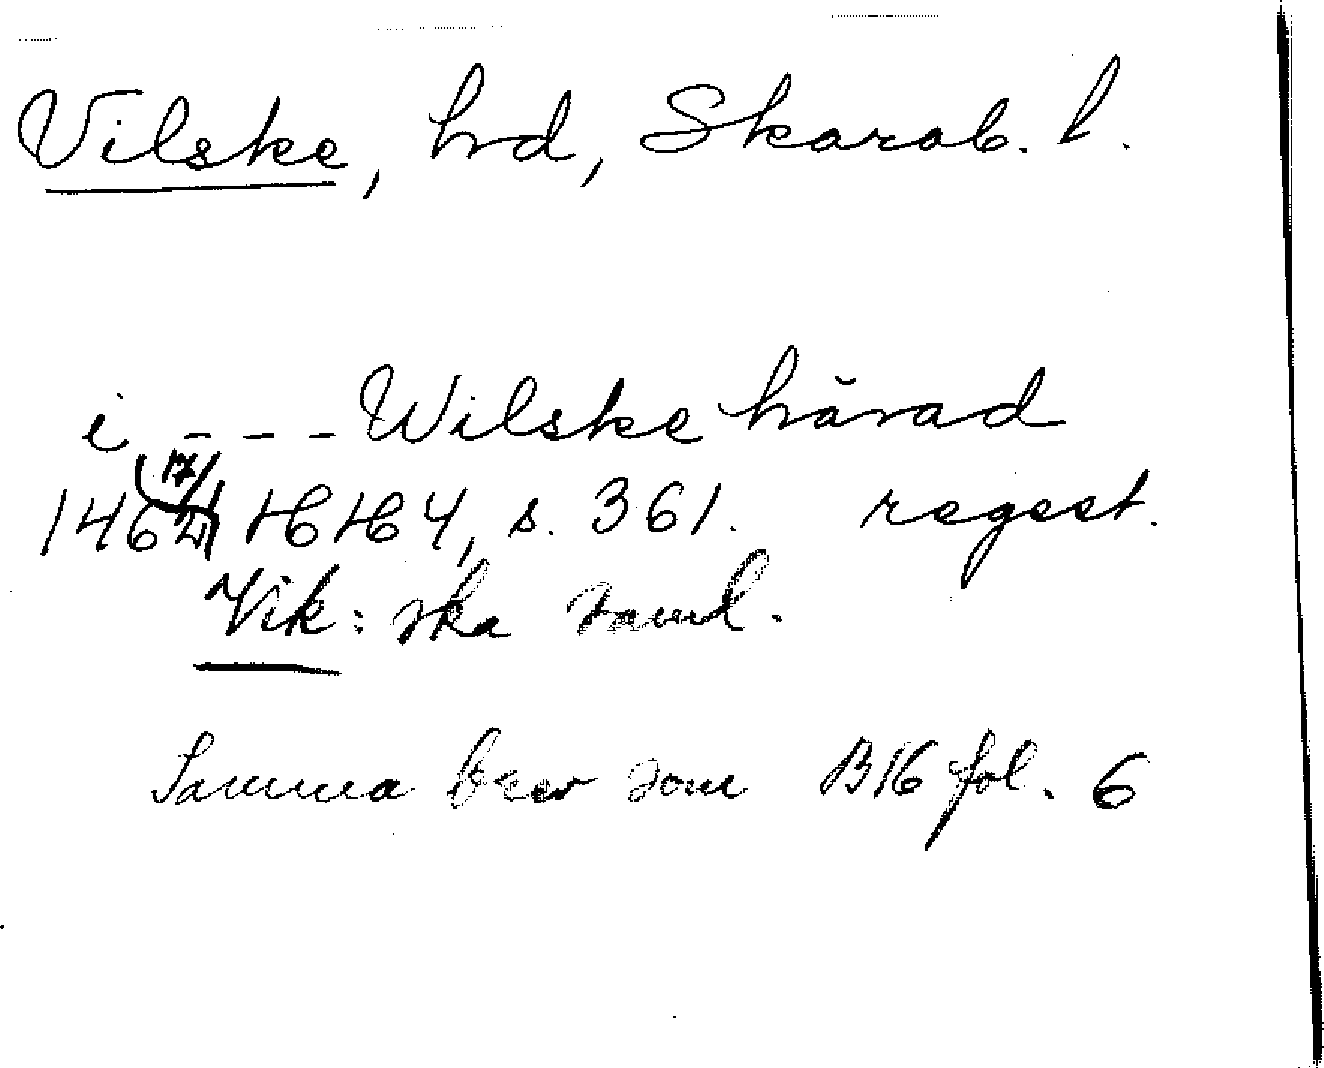 Vilske, hd, Skarab. l.
i - - - Wilske härad
17/4
146 HH 4, s. 361. regest.
Vik: ska saml.
Samma brev som B16 fol. 6